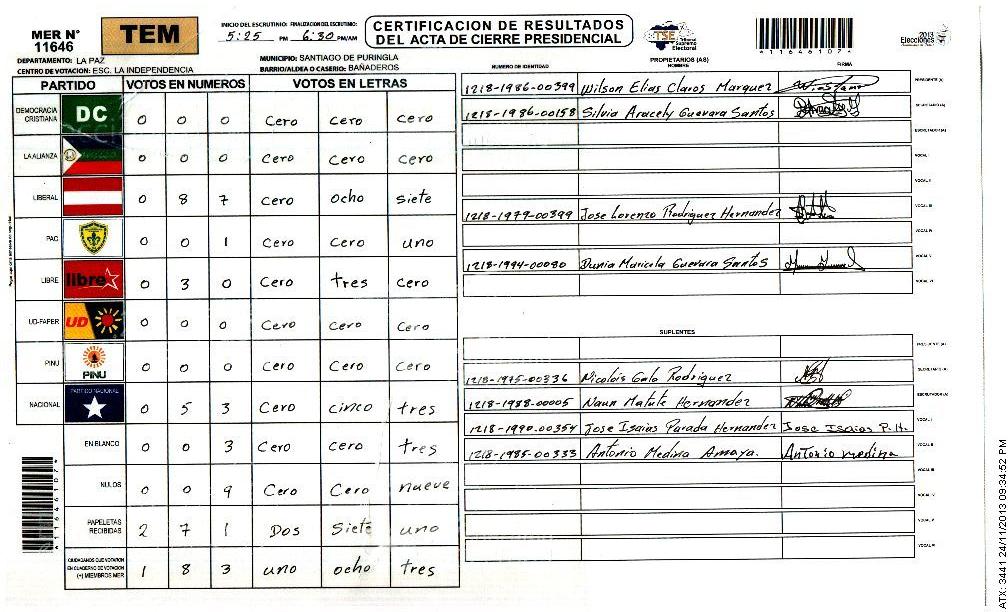 MER N° 11646
TEM
INICIO DEL ESCRUTINIO: FINALIZACION DEL ESCRUTINIO:
5:25 PM 6:30 PM/AM
CERTIFICACION DE RESULTADOS
DEL ACTA DE CIERRE PRESIDENCIAL
TSE Tribunal Supremo Electoral
1164610 7
2013 Elecciones
DEPARTAMENTO: LA PAZ
MUNICIPIO: SANTIAGO DE PURINGLA
CENTRO DE VOTACION: ESC. LA INDEPENDENCIA
BARRIO/ALDEA O CASERIO: BAÑADEROS
PARTIDO VOTOS EN NUMEROS VOTOS EN LETRAS
DEMOCRACIA CRISTIANA DC 0 0 0 Cero Cero Cero
LA ALIANZA 0 0 0 Cero Cero Cero
LIBERAL 0 8 7 Cero ocho siete
PAC 0 0 1 Cero Cero uno
LIBRE libre 0 3 0 Cero tres Cero
UD-FAPER UD 0 0 0 Cero Cero Cero
PINU PINU 0 0 0 Cero Cero Cero
NACIONAL PARTIDO NACIONAL 0 5 3 Cero cinco tres
EN BLANCO 0 0 3 Cero cero tres
NULOS 0 0 9 Cero Cero nueve
PAPELETAS RECIBIDAS 2 7 1 Dos Siete uno
CIUDADANOS QUE VOTARON EN CUADERNO DE VOTACION (+) MIEMBROS MER 1 8 3 uno ocho tres
PROPIETARIOS (AS)
NUMERO DE IDENTIDAD NOMBRE FIRMA
1218-1986-00399 Wilson Elias Claros Marquez PRESIDENTE (A)
1218-1986-00158 Silvia Aracely Guevara Santos SECRETARIO (A)
ESCRUTADOR (A)
VOCAL I
VOCAL II
1218-1979-00399 Jose Lorenzo Rodriguez Hernandez VOCAL III
VOCAL IV
1218-1994-00080 Dunia Maricela Guevara Santos VOCAL V
VOCAL VI
SUPLENTES
PRESIDENTE (A)
1218-1975-00336 Nicolás Galo Rodriguez SECRETARIO (A)
1218-1988-00005 Naun Matute Hernandez ESCRUTADOR (A)
1218-1990-00354 Jose Isaias Parada Hernandez Jose Isaias P.H. VOCAL I
1218-1985-00333 Antonio Medina Amaya. Antonio medina VOCAL II
VOCAL III
VOCAL IV
VOCAL V
VOCAL VI
ATX: 3441 24/11/2013 09:34:52 PM